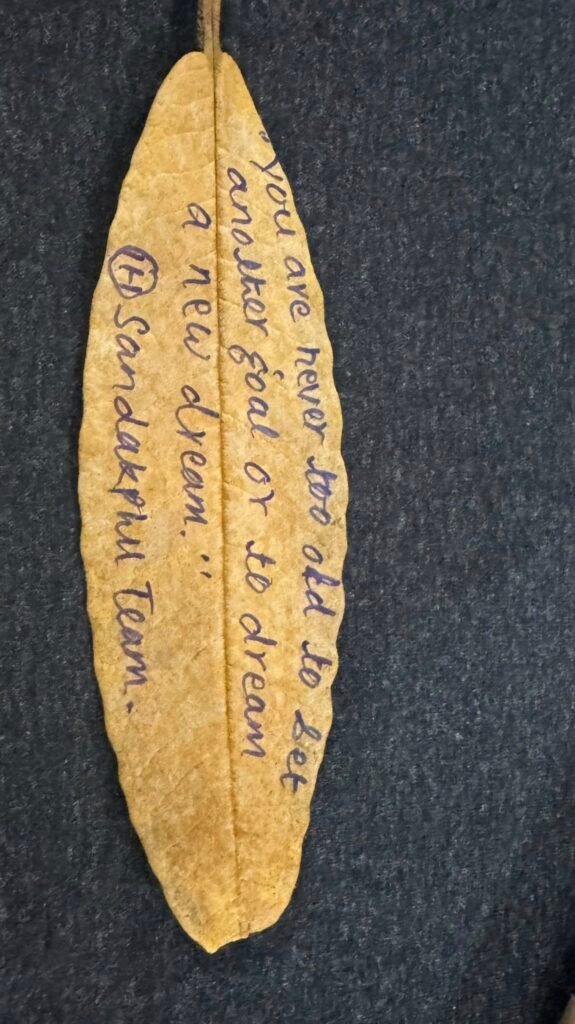 "You are never too old to set
another goal or to dream
a new dream."
Sandakphu Team.